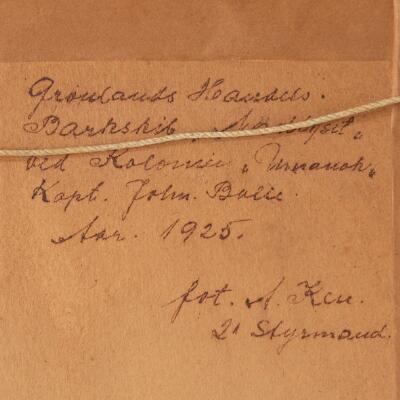 Grönlands Handels.
Barkskib
ved Kolonien „Umanak„
Kapt. John. Balle.
Aar. 1925.
fot. A.
2n Styrmand.